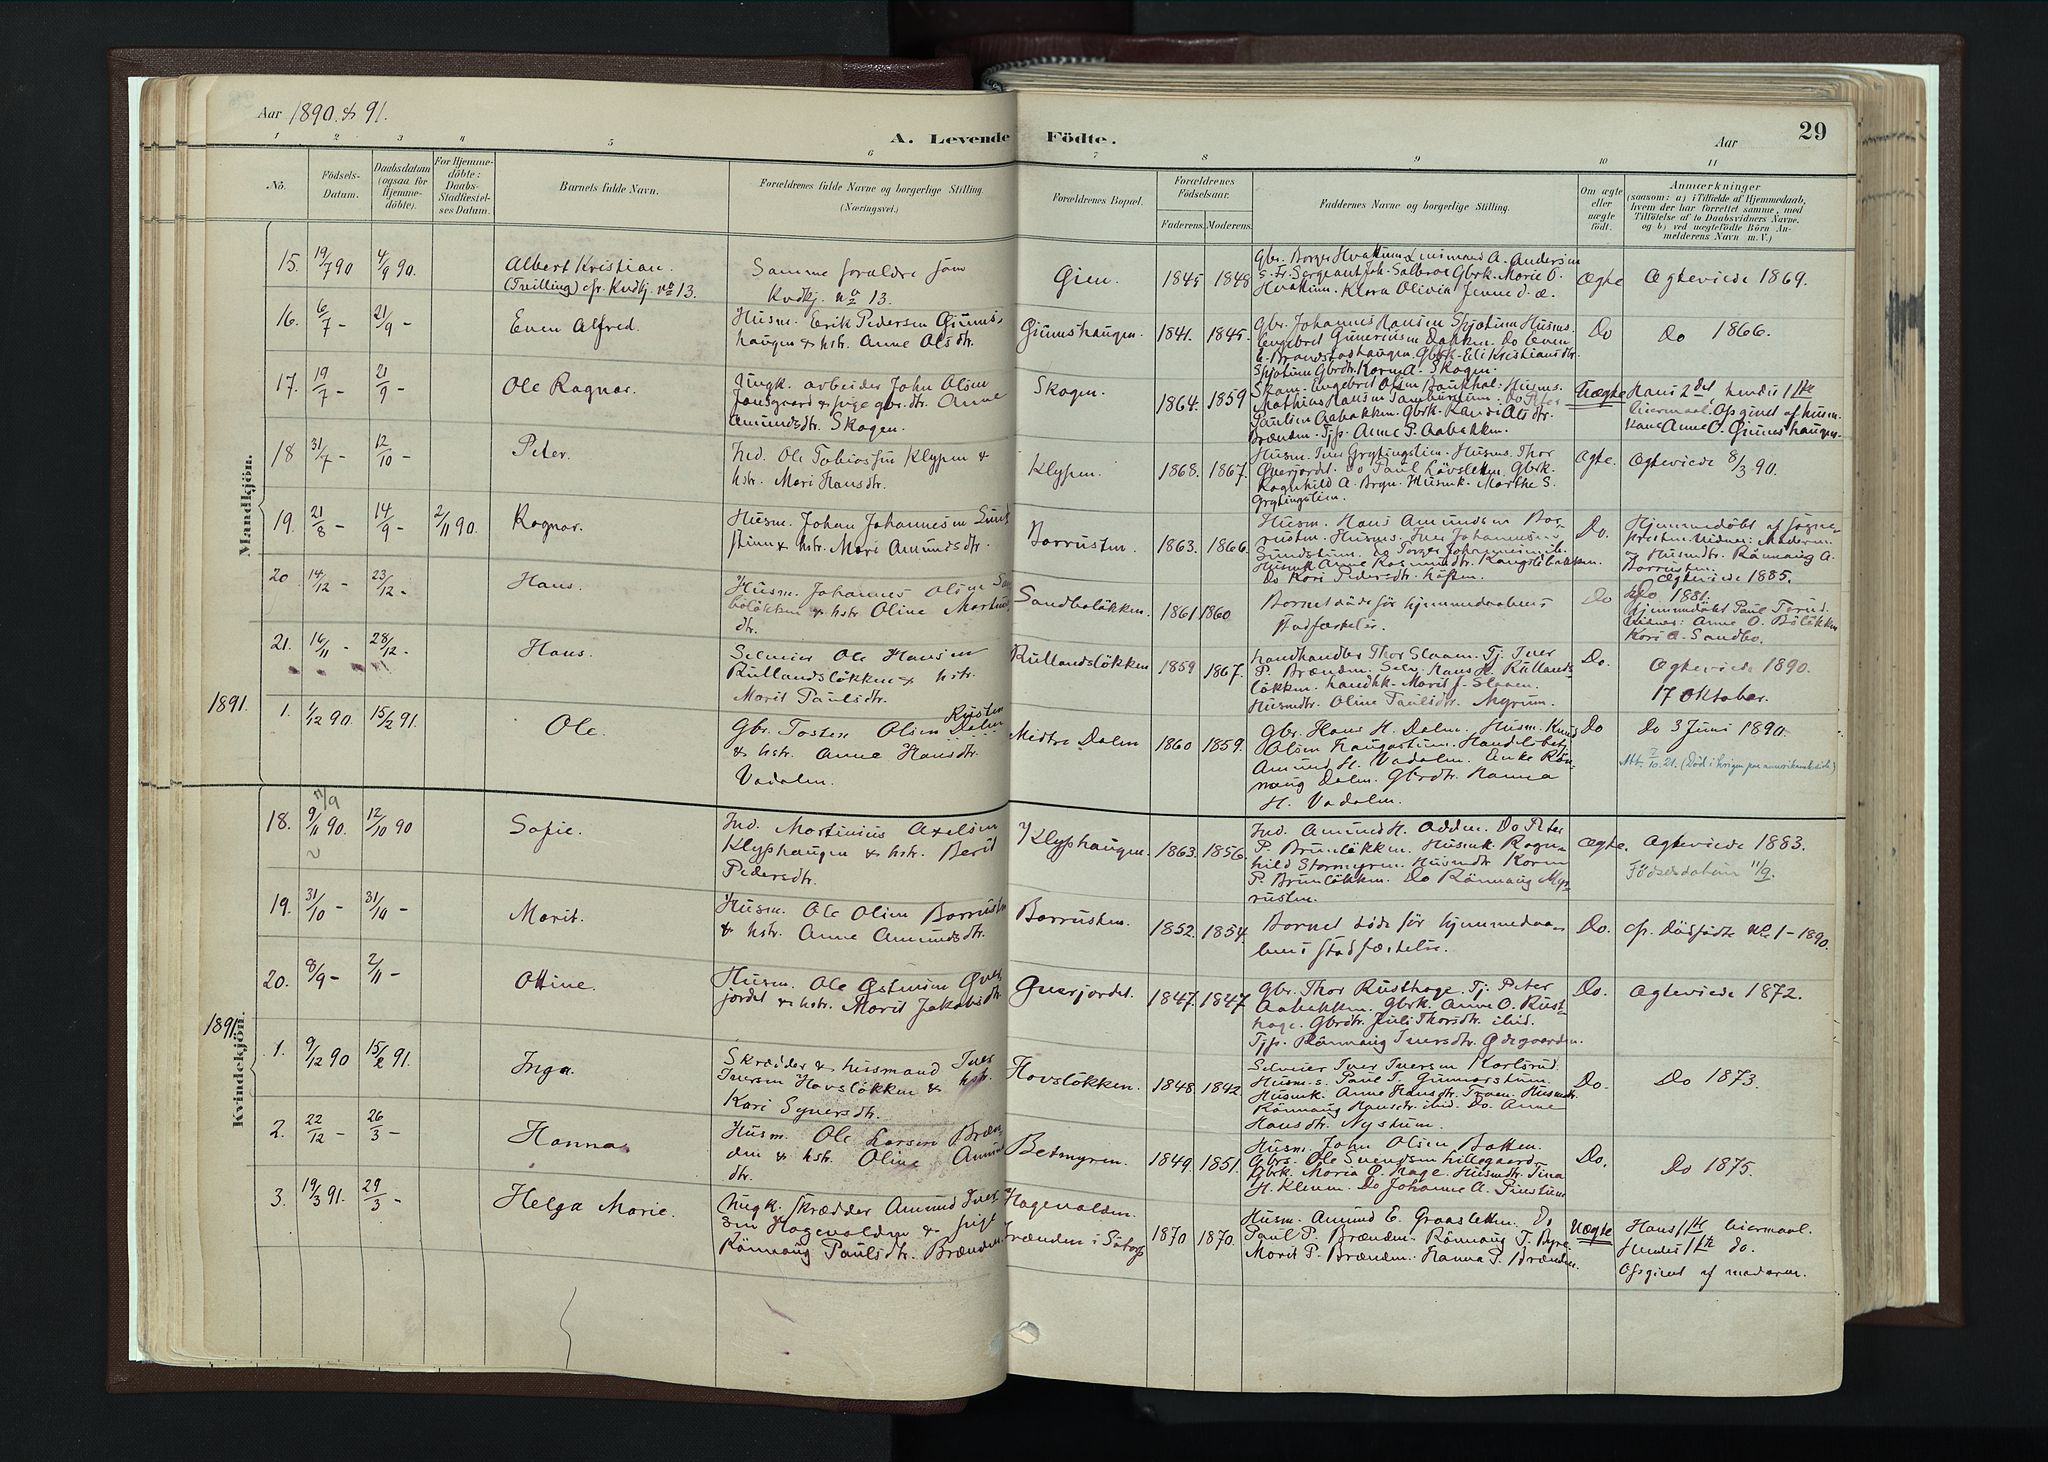 Aar 1890 & 91.
A. Levende Födte.
Aar 29
1 2 3 4 5 6 7 8 9 10 11
No.
Fødsels-
Datum.
Daabsdatum
(ogsaa for
Hjemme-
döbte).
For Hjemme-
döbte:
Daabs-
Stadfæstel-
ses Datum.
Barnets fulde Navn.
Forældrenes fulde Navne og borgerlige Stilling.
(Næringsvei.)
Forældrenes Bopæl.
Forældrenes
Födselsaar.
Faderens. Moderens.
Faddernes Navne og borgerlige Stilling.
Om ægte
eller
uægte
født.
Anmærkninger
(saasom: a) i Tilfælde af Hjemmedaab,
hvem der har forrettet samme, med
Tilföielse af to Daabsvidners Navne.
og b) ved uægtefödte Börn An-
melderens Navn m. V.)
Mandkjön.
15. 19/7 90 4/9 90.
Albert Kristian.
(Tvilling) cfr. Kvdkj. no 13.
Samme forældre som
Kvdkj. no 13.
Gien. 1845 1848
Gbr. Borger Hvattum
Sergeant Joh. Solbroe Gbrk. Marie O.
Hvattum. Klara Olivia Jenne d. æ.
Ægte Ægteviede 1869.
16. 6/7 - 21/9 -
Even Alfred.
Husm. Erik Pedersen Giums-
haugen & hstr. Anne Olsdtr.
Giumshaugen. 1841. 1845.
Gbr. Johannes Hansen Spjotum Husms.
Engebret Gunerius Dokken. Do Even
E. Brandstadhaugen. Gbrk. Eli Kristiansdtr.
Spjotum Gbrdtr. Karen A. Skogen.
Do Do 1866.
17. 19/7 - 21/9 -
Ole Ragnar.
Ungk. arbeider John Olsen
& pige gbr.dtr. Anne
Amundsdtr. Skogen.
Skogen. 1864. 1859
Skom. Engebret Olsen Husms.
Mathias Hansen
Paulsen Aabakken. Gbrk. Kari Olsdtr.
Brænden. Tjp. Anne P. Aabakken.
Uægte Hans 2det, hendes 1ste
leiermaal. Opgivet af husm.
kone Anne O. Giumshaugen.
18 31/7 - 12/10 -
Peter.
Ind. Ole Tobiassen Klypen &
hstr. Mari Hansdtr.
Klypen. 1868. 1867.
Husm. Iver Grytingslien. Husms. Thor
Øverjordet. Do Paul Løvslethen. Gbrk.
Ragnhild A. Bryn. Husmk. Marthe S.
Grytingslien.
Ægte. Ægteviede 8/3 90.
19. 21/8 - 14/9 - 2/11 90.
Ragnar.
Husm. Johan Johannesen Sund-
stuen & hstr. Mari Amundsdtr.
Borrusten. 1863. 1866.
Husm. Hans Amundsen Bor-
rusten. Husms. Iver Johannesen
Sundstuen. Do Torger Johannesen ib.
Husmk Anne Rasmusdtr. Kongslibakken.
Do Kari Pedersdtr. Loften.
Do. Hjemmedøbt af sogne-
presten. Vidner: Moderen
og Husmdtr. Rönnaug A.
Borrusten.
Ægteviede 1885.
20 14/12 - 23/12 -
Hans.
Husm. Johannes Olsen San-
boløkken & hstr Oline Mortens-
dtr.
Sandboløkken. 1861 1860
Barnet døde før hjemmedaabens
stadfæstelse.
Do Do 1881.
Hjemmedøbt Paul Torud.
Vidnes: Anne O. Böløkken
Kari A. Sandbo.
21. 16/11 - 28/12 -
Hans.
Selveier Ole Hansen
Rullandsløkken & hstr.
Marit Paulsdtr.
Rullandsløkken 1859 1867.
Landhandler Thor Slaaen. Tj. Iver
P. Brænden. Selv. Hans H. Rullands-
løkken. Landhk. Marit J. Slaaen.
Husmdtr. Oline Paulsdtr. Myrum.
Do. Ægteviede 1890.
17 Oktober.
1891.
1. 1/12 90. 15/2 91.
Ole.
Rusten
Gbr. Tosten Olsen Dalen
& hstr. Anne Hansdtr.
Vadalen.
Midtre Dalen 1860 1859.
Gbr. Hans H. Dalen. Husm. Knud
Olsen Haugastuen. Handelsbetj.
Amund H. Vadalen. Enke Rön-
naug Dalen. Gbrdtr. Hanna
H. Vadalen.
Do Do 3 Juni 1890.
Att. 7/10.21. (Død i krigen paa amerikansk side)
Kvindekjön.
11/9
18. 9/11 90. 12/10 90
Sofie.
Ind. Martinius Axelsen
Klyphaugen & hstr. Berit
Pedersdtr.
Klyphaugen. 1863. 1856.
Ind. Amund H. Odden. Do Peter
P. Brunløkken. Husmk. Ragn-
hild Stormyren. Husmdtr Karen
P. Brunløkken. Do Rönnaug Myr-
rusten.
Ægte. Ægteviede 1883.
Födselsdatum 11/9.
19. 31/10 - 31/10 -
Marit.
Husm. Ole Olsen Borrusten
& hstr. Anne Amundsdtr.
Borrusten. 1852. 1854.
Barnet døde før hjemmedaa-
bens stadfæstelse.
Do. cfr. Dödfødte No 1 - 1890.
20. 8/9 - 2/11 -
Ottine.
Husm. Ole Østensen Øver-
jordet & hstr. Marit Jakobsdtr.
Øverjordet. 1847. 1847.
Gbr. Thor Rusthage. Tj. Peter
Aabakken. Gbrk. Anne O. Rust-
hage. Gbrdtr. Juli Thorsdtr. ibid.
Tjp. Rönnaug Iversdtr. Ødegaarden.
Do. Ægteviede 1872.
1891.
1. 9/12 90 15/2 91.
Inga.
Skrædder & husmand Iver
Iversen Hovsløkken & hstr.
Kari Syversdtr.
Hovsløkken. 1848. 1842.
Selveier Iver Iversen Karlsrud.
Husm.s. Paul T. Gunnarstuen.
Husmk. Anne Hansdtr. Husmdtr.
Rönnaug Hansdtr. ibid. Do. Anne
Hansdtr. Nystuen.
Do. Do 1873.
2. 22/12 - 26/3 -
Hanna
Husm. Ole Larsen Bræn-
den & hstr. Oline Amunds-
dtr.
Betmyren. 1849. 1851.
Husm. John Olsen Bakken.
Gbrs. Ole Svendsen Lillegaard.
Gbrk. Maria O. Hage. Husmdtr. Tina
H. Kleven. Do Johanne A.
Do. Do 1875
3. 19/3 91. 29/3 -
Helga Marie.
Ungk. skrædder Amund Iver-
sen Hagevolden & pige
Rönnaug Paulsdtr. Brænden.
Hagevolden.
Brænden i Södorp 1870 1870.
Husm. Amund E. Graasletten. Do
Paul P. Brænden. Rönnaug T. Byre.
Marit P. Brænden. Hanna P. Brænden.
Uægte Hans 1ste leiermaal.
Hendes 1ste do.
Opgivet af moderen.